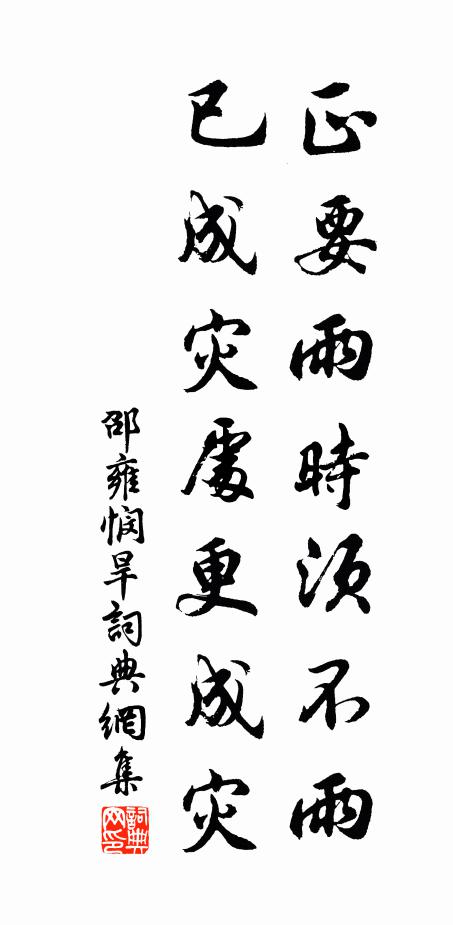 正要雨時須不雨
已成灾處更成灾
邵雍憫旱詞典網集
詞典網印